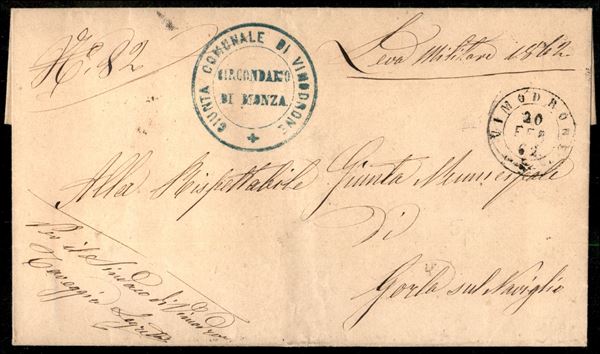 N.° 82
GIUNTA COMUNALE DI VIMODRONE
CIRCONDARIO
DI MONZA
Leva Militare 1862
VIMODRONE
20
FEB
62
Alla Rispettabile Giunta Municipale
Di
Gorla sul Naviglio
Per il Sindaco di Vimodrone